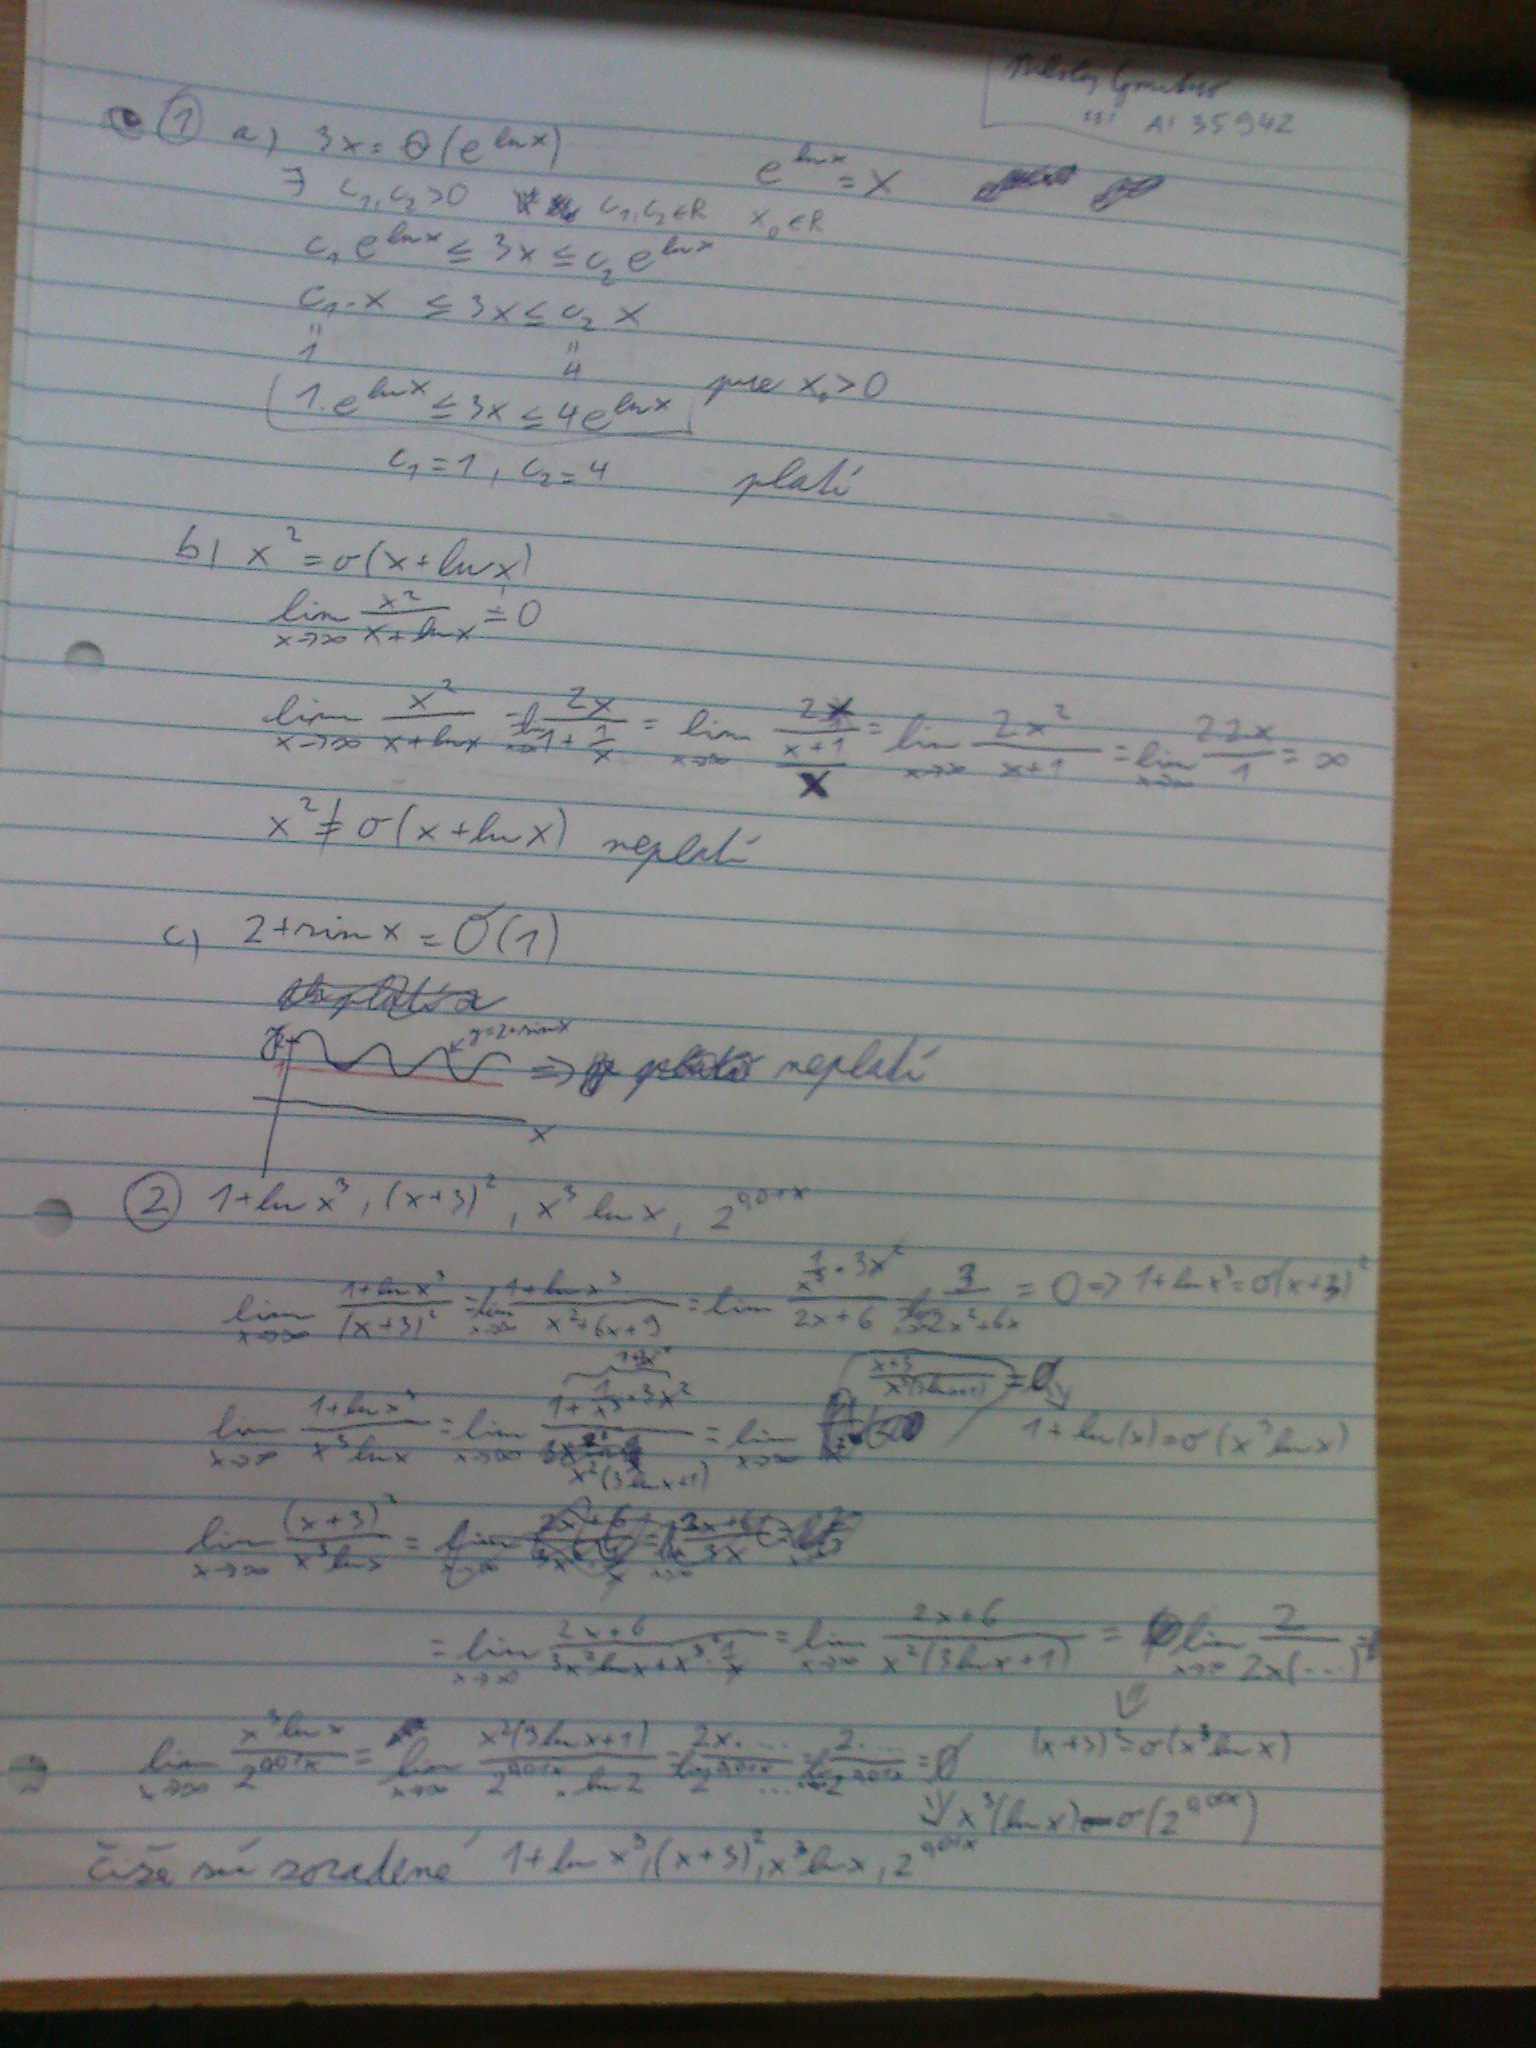 AI 35942
① a) 3x = Θ(e^{ln x})
e^{ln x} = x
∃ c₁, c₂ > 0 c₁, c₂ ∈ R x₀ ∈ R
c₁ e^{ln x} ≤ 3x ≤ c₂ e^{ln x}
c₁·x ≤ 3x ≤ c₂ x
" "
1 4
1·e^{ln x} ≤ 3x ≤ 4e^{ln x} pre x₀ > 0
c₁ = 1, c₂ = 4 platí
b) x² = σ(x + ln x)
lim_{x→∞} x²/(x + ln x) = 0
lim_{x→∞} x²/(x + ln x) = lim_{x→∞} 2x/(1 + 1/x) = lim_{x→∞} 2x/((x+1)/x) = lim_{x→∞} 2x²/(x+1) = lim_{x→∞} 2·2x/1 = ∞
x² ≠ σ(x + ln x) neplatí
c) 2 + sin x = O(1)
y = 2 + sin x
⇒ neplatí
x
② 1 + ln x³, (x+3)², x³ ln x, 2^{0,01x}
lim_{x→∞} (1 + ln x³)/(x+3)² = lim_{x→∞} (1 + ln x³)/(x² + 6x + 9) = lim (1/x³ · 3x²)/(2x + 6) = lim_{x→∞} 3/(2x² + 6x) = 0 ⇒ 1 + ln x³ = σ(x+3)²
1+3x⁻¹
lim_{x→∞} (1 + ln x³)/(x³ ln x) = lim_{x→∞} (1 + 1/x³ · 3x²)/(x²(3 ln x + 1)) = lim_{x→∞} (x+3)/(x³(3 ln x + 1)) = 0
1 + ln(x) = σ(x³ ln x)
lim_{x→∞} (x+3)²/(x³ ln x) =
= lim_{x→∞} (2x + 6)/(3x² ln x + x³ · 1/x) = lim_{x→∞} (2x + 6)/(x²(3 ln x + 1)) = lim_{x→∞} 2/(2x(...)) =
⇓
(x+3)² = σ(x³ ln x)
lim_{x→∞} (x³ ln x)/2^{0,01x} = lim_{x→∞} x²(3 ln x + 1)/(2^{0,01x} · ln 2) = lim 2x·.../(2^{0,01x} ...) = lim 2·.../2^{0,01x} = 0
⇓ x³(ln x) = σ(2^{0,01x})
Čiže sú zoradené 1 + ln x³, (x+3)², x³ ln x, 2^{0,01x}